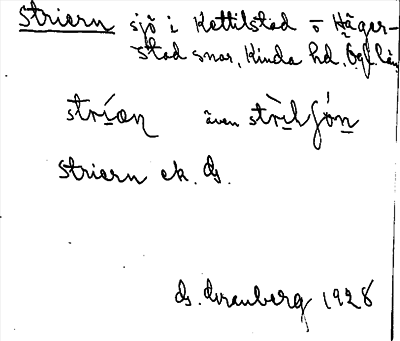 Striern sjö i Kettilstad o Häger-
stad snar, Kinda hd. Ögl. län
stríœn även strìljón
Striern ek. ds.
ds. Granberg 1928